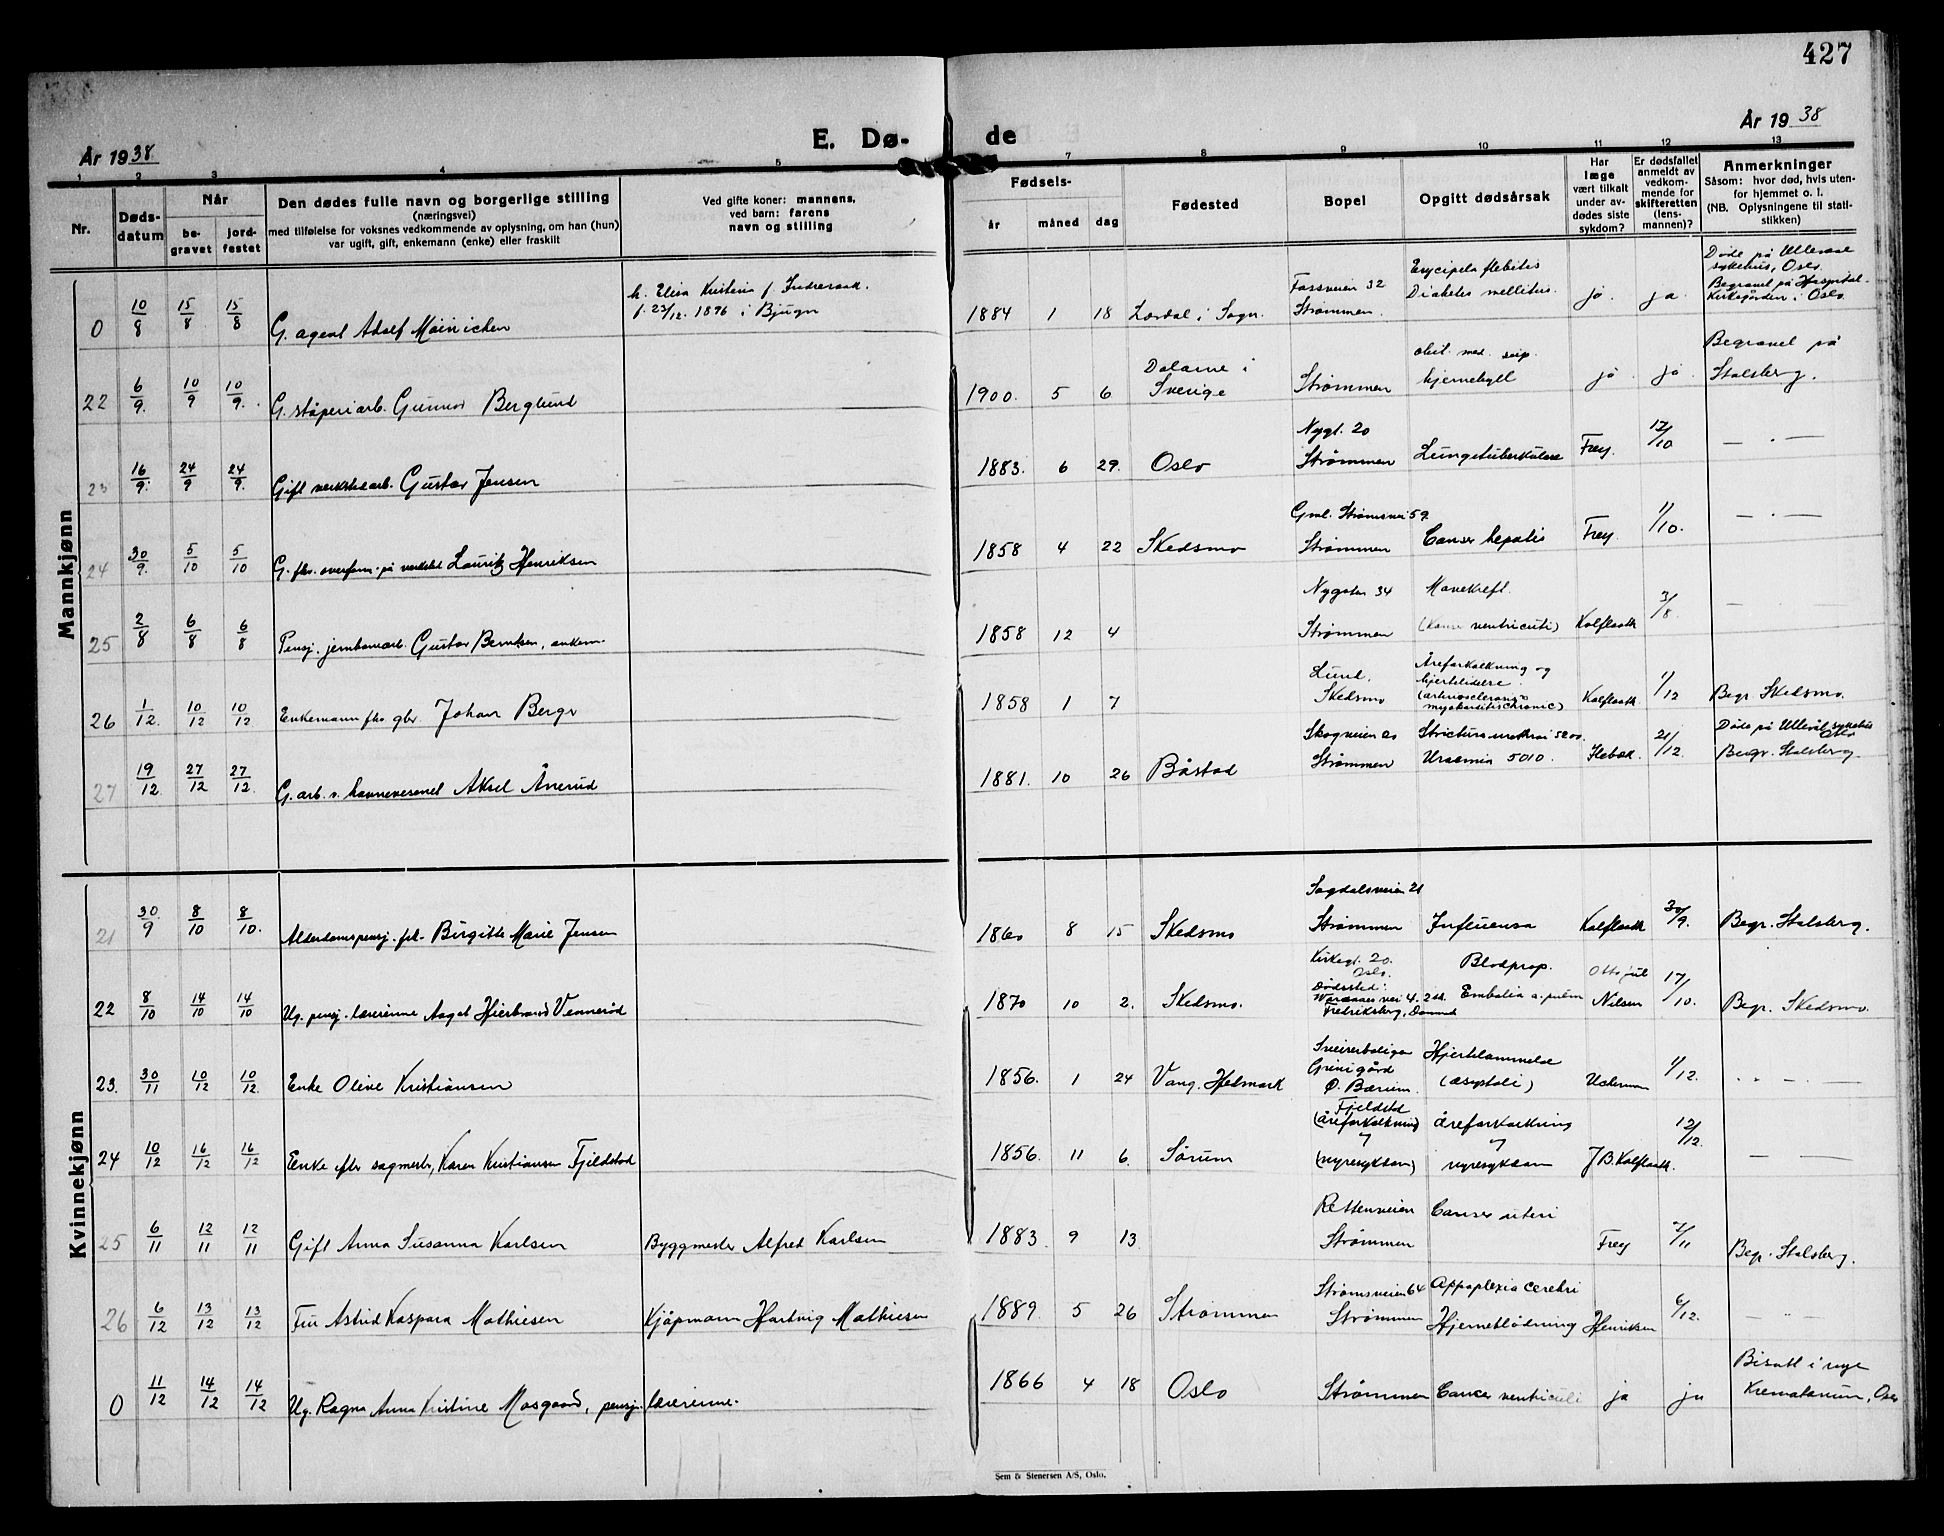 427
År 1938
E. Dø-
de
År 1938
1
2
3
4
5
7
8
9
10
11
12
13
Nr.
Døds-
datum
Når
be-
gravet
jord-
festet
Den dødes fulle navn og borgerlige stilling
(næringsvei)
med tilføielse for voksnes vedkommende av oplysning, om han (hun)
var ugift, gift, enkemann (enke) eller fraskilt
Ved gifte koner: mannens,
ved barn: farens
navn og stilling
Fødsels-
år
måned
dag
Fødested
Bopel
Opgitt dødsårsak
Har
læge
vært tilkalt
under av-
dødes siste
sykdom?
Er dødsfallet
anmeldt av
vedkom-
mende for
skifteretten
(lens-
mannen)?
Anmerkninger
Såsom: hvor død, hvis uten-
for hjemmet o. l.
(NB. Oplysningene til stati-
stikken)
Mannkjønn
0 10/8 15/8 15/8 G. agent Adolf Møinichen
h. Elisa Kristina f.
f. 23/12. 1896 i Bjugn
1884 1 18 Lærdal i Sogn.
Fossveien 32
Strømmen.
flebitis
Diabetes mellitus.
ja ja
Døde på Ullevaal
sykehus, Oslo.
Begravet på Hospital-
kirkegården i Oslo.
22 6/9. 10/9 10/9. G. støperiarb. Gunnar Berglund
1900. 5 6
Dalarne i
Sverige
Strømmen
med.
hjernebyll
ja ja.
Begravet på
Stalsberg.
23 16/9. 24/9 24/9. Gift verkstedarb. Gustav Jensen
1883. 6 29. Oslo
Nygt. 20
Strømmen
Lungetuberkulose
Frey. 17/10
— . —
24 30/9. 5/10 5/10 G. fhv. overform. på verksted Lauritz Henriksen
1858 4 22 Skedsmo
Gml. Strømsvei 59.
Strømmen
Cancer hepatis
Frey. 1/10.
— . —
25 2/8 6/8 6/8 Pensj. jernbanearb. Gustav Berntsen, enkem.
1858 12 4
Nygaten 34
Strømmen
Mavekreft.
ventriculi)
Kalfloath 3/8
— —
26 1/12. 10/12 10/12. Enkemann fhv. gbr. Johan Berge
1858 1 7
Lund.
Skedsmo
Åreforkalkning og
hjertelidelse.
Kalfloath. 1/12
Begr. Skedsmo.
27 19/12 27/12 27/12. G. arb. v. havnevesenet Aksel Ånerud
1881. 10 26 Båstad
Skogveien 20
Strømmen
Strictura urethrai 5200.
Uraemia 5010.
21/12.
Døde på Ullevål sykehus
Oslo
Begr. Stalsberg.
Kvinnekjønn
21 30/9 8/10 8/10. Alderdomspensj. frk. Birgitte Marie Jensen
1860 8 15 Skedsmo
Sagdalsveien 21
Strømmen
Influensa
Kalfloath 30/9.
Begr. Stalsberg.
22 8/10 14/10 14/10 Ug. pensj. lærerinne Aagot Hjerbrand Vennerød
1870 10 2. Skedsmo.
Kirkegt. 20.
Oslo.
Dødssted:
vei 4. 2 sal.
Fredriksberg, Danmark
Blodprop.
Embolia a. pulm
Otto Jul
Nilsen
17/10.
Begr. Skedsmo.
23. 30/11 10/12 10/12. Enke Olive Kristiansen
1856. 1 24 Vang. Hedmark
Sveiserboligen
Grini gård
Ø. Bærum.
Hjertelammelse
1/12.
24 10/12 16/12 16/12 Enke efter sagmester, Karen Kristiansen Fjeldstad
1856. 11 6. Sørum
Fjeldstad
(åreforkalkning
(nyresykdom)
åreforkalkning
nyresykdom
J B. Kalfloath. 12/12.
— —
25 6/11 12/11 12/11 Gift Anna Susanna Karlsen
Byggmester Alfred Karlsen
1883. 9 13.
Rettenveien
Strømmen
Cancer uteri
Frey 7/11
Begr. Stalsberg.
26 6/12 13/12 13/12 Fru Astrid Kaspara Mathiesen
Kjøpmann Hartvig Mathiesen
1889. 5 26 Strømmen
Strømsveien 64
Strømmen
Appoplexia cerebri
Hjerneblødning
Henriksen 6/12.
— —
0 11/12 14/12 14/12 Ug. Ragna Anna Kristine Mosgaard, pensj. lærerinne.
1866 4 18 Oslo
Strømmen
Cancer ventriculi
ja ja
Bisatt i nye
Krematorium, Oslo
Sem & Stenersen A/S, Oslo.